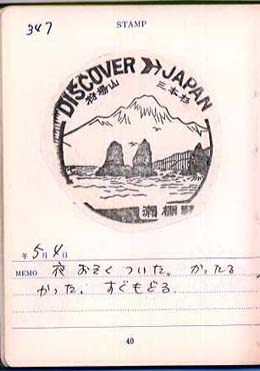 347
STAMP
DISCOVER JAPAN
狩場山 三本杉
瀬棚駅
年 5月 4日
MEMO 夜 おそく ついた。 かったる
かった。 すぐもどる.
40